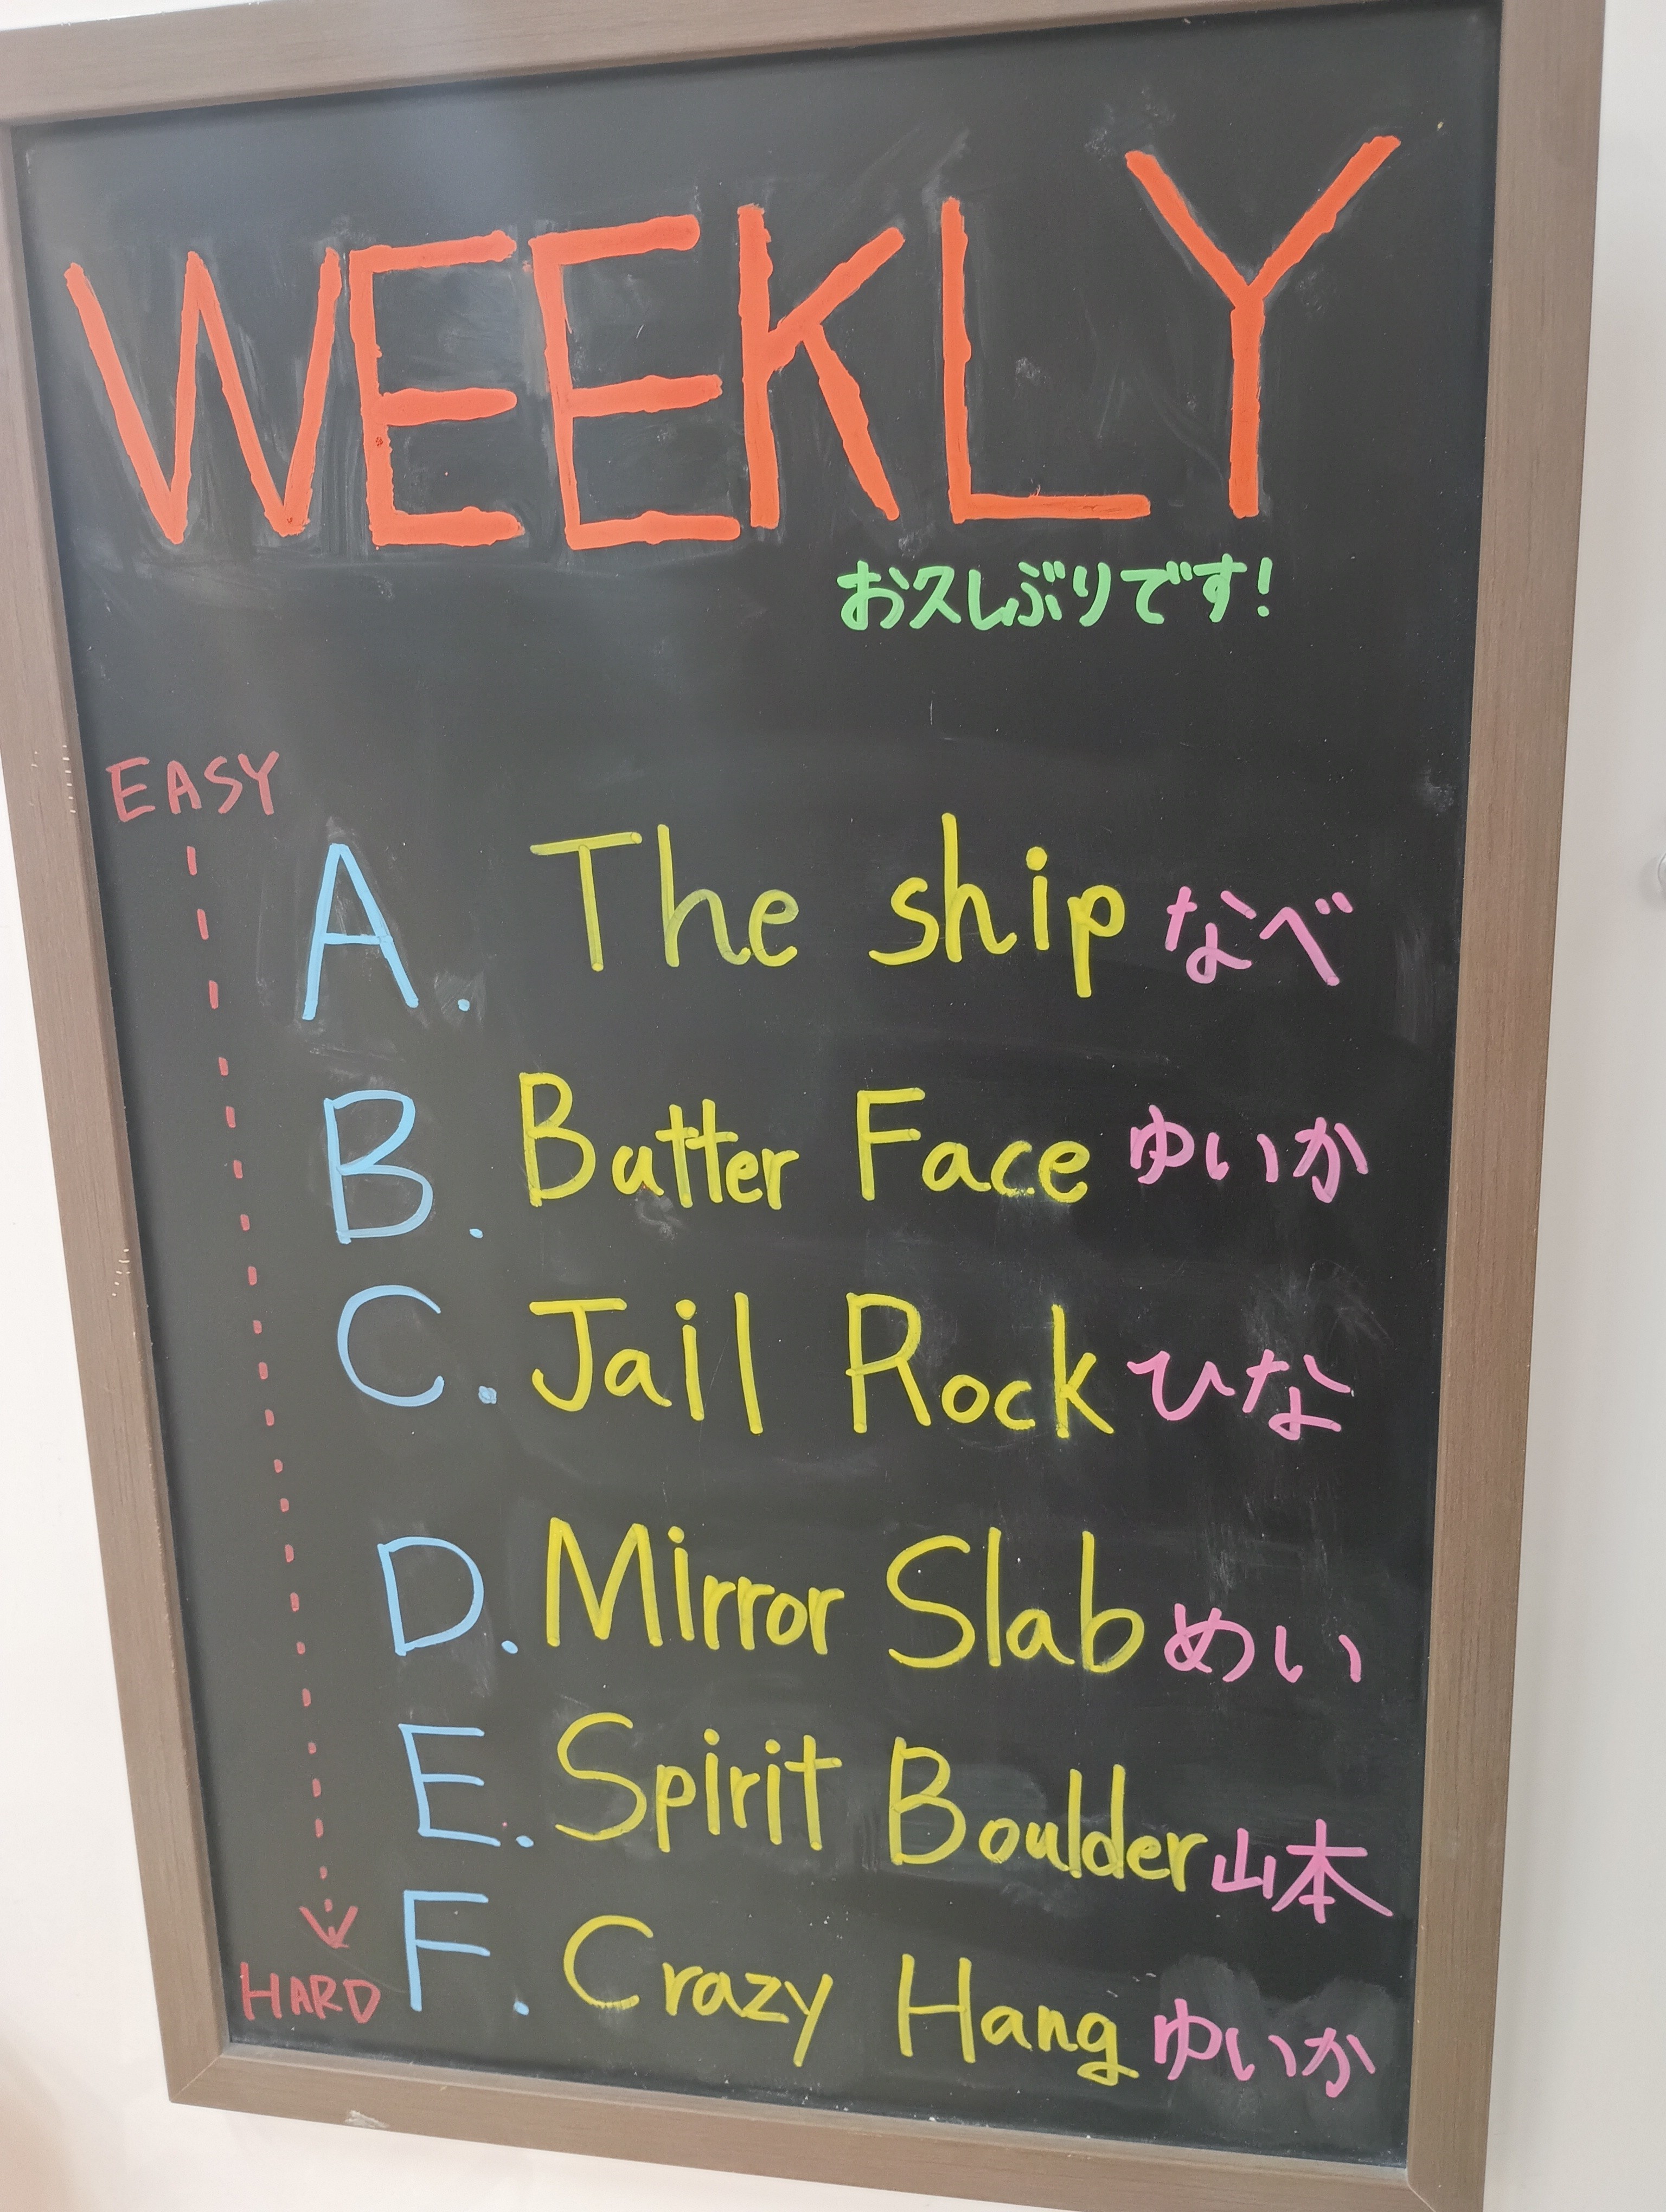 WEEKLY
お久しぶりです!
EASY
A. The ship なべ
B. Butter Face ゆいか
C. Jail Rock ひな
D. Mirror Slab めい
E. Spirit Boulder 山本
F. Crazy Hang ゆいか
HARD